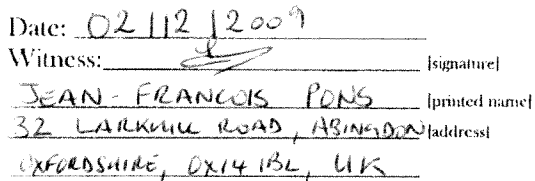 Date: 02/12/2009
Witness: [signature]
JEAN-FRANCOIS PONS [printed name]
32 LARKHILL ROAD, ABINGDON [address]
OXFORDSHIRE, OX14 1BL, UK